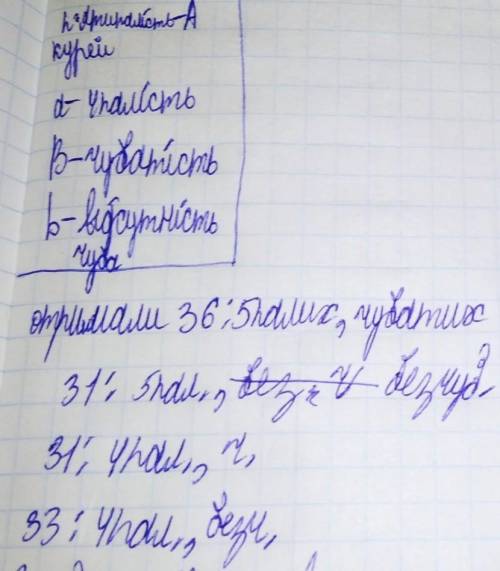 п'ятипалість-А
курей
а- 4палість
В-чубатість
b-відсутність
чуба
отримали 36: 5палих, чубатих
31: 5пал., безчуб.
31: 4пал., ч,
33: 4пал., безч,